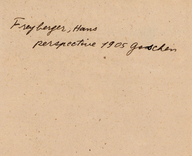 Freyberger, Hans
perspective 1905 Goschen